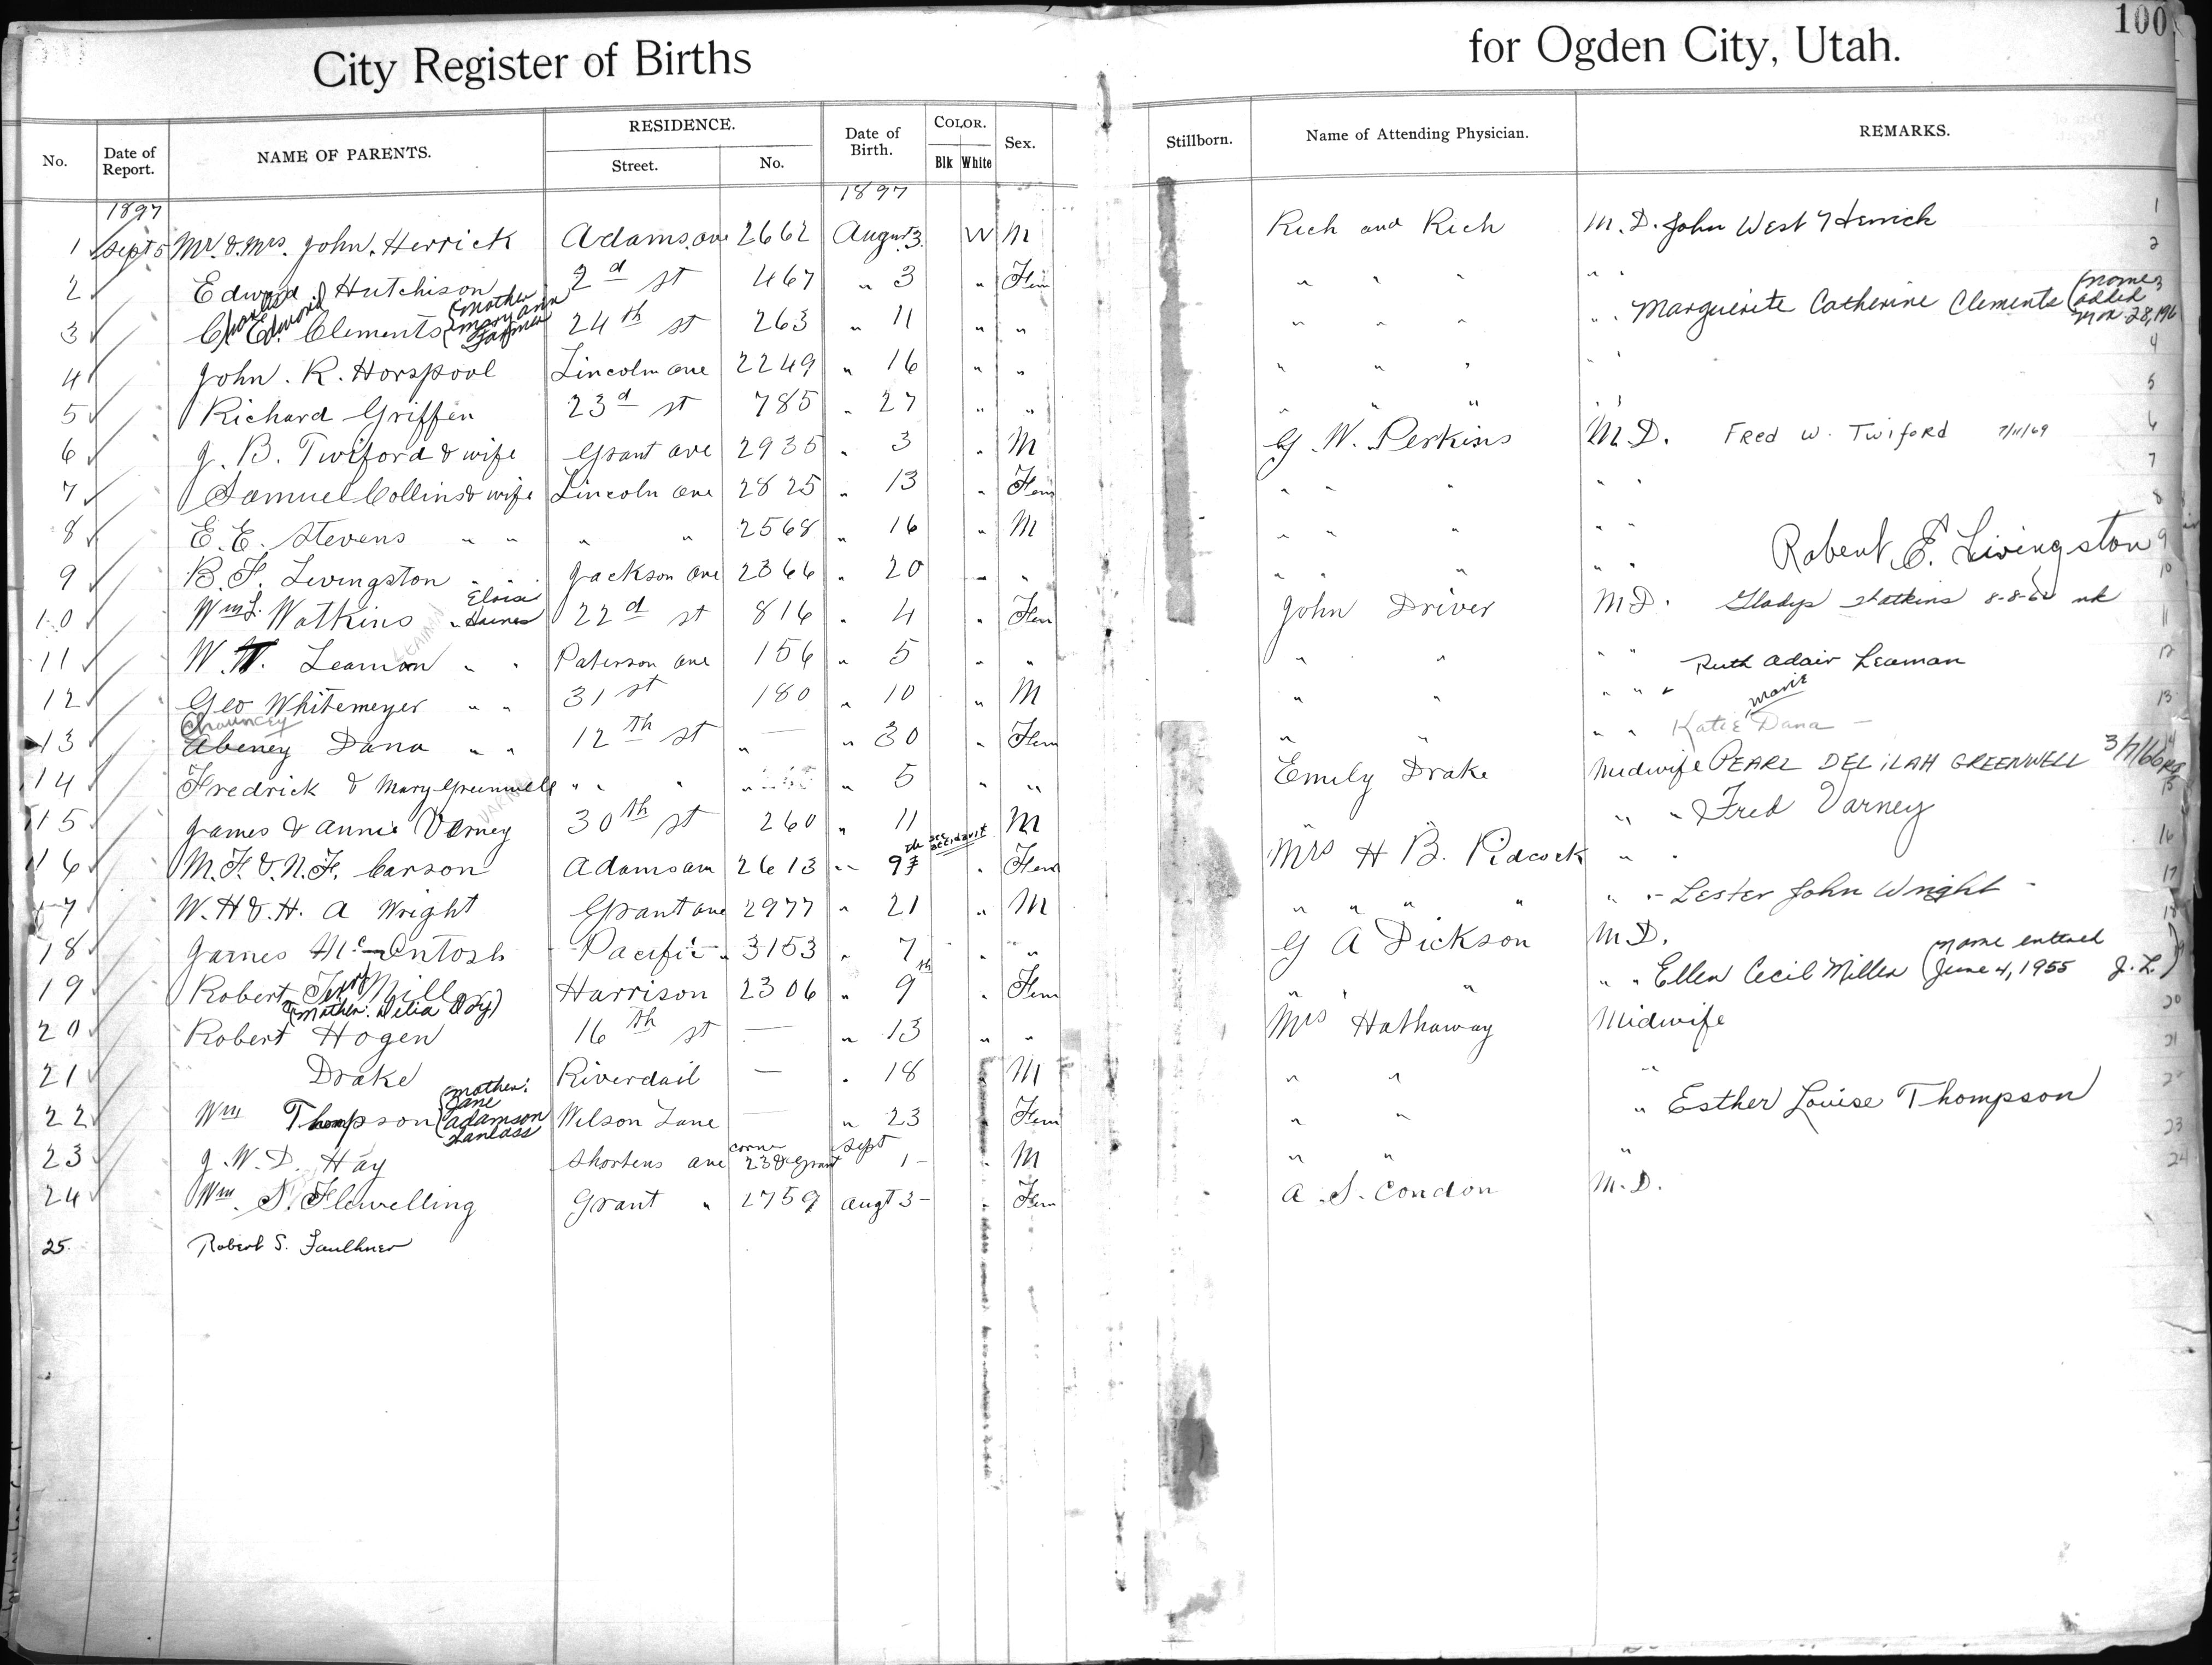 100
City Register of Births for Ogden City, Utah.
No. Date of Report. NAME OF PARENTS. RESIDENCE. Street. No. Date of Birth. COLOR. Blk White Sex. Stillborn. Name of Attending Physician. REMARKS.
1897 1897
1 Sept 5 Mr. & Mrs. John. Herrick Adams. ave 2662 August 3 W M Rich and Rich M. D. John West Herrick 1
2 Edward Hutchison 2d st 467 " 3 " Fem " " " " " 2
3 Charles Edward Clements (mother Mary Ann 24th st 263 " 11 " " " " " " " Marguerite Catherine Clements (name added 28, 196
4 John. R. Horspool Lincoln ave 2249 " 16 " " " " " " " 4
5 Richard Griffen 23d st 785 " 27 " " " " " " " 5
6 J. B. Twiford & wife Grant ave 2935 " 3 " M G. W. Perkins M. D. FRed W. TwifoRd 7/11/69 6
7 Samuel Collins & wife Lincoln ave 2825 " 13 " Fem " " " " " 7
8 E. E. Stevens " " " " 2568 " 16 " M " " " " " 8
9 B. F. Livingston " " Jackson ave 2366 " 20 " " " " " " " Robert E. Livingston 9
10 Wm L. Watkins " Eloise Haines 22d st 816 " 4 " Fem John Driver M D. Gladys Watkins 8-8-60 nk 10
11 W. W. Leaman " " Paterson ave 156 " 5 " " " " " " Ruth Adair Leaman 11
12 Geo Whitemeyer " " 31st 180 " 10 " M " " " " " 12
13 Chauncey Abeney Dana " " 12th st " — " 30 " Fem " " " " Katie Marie Dana — 13
14 Fredrick & Mary Greenwell " " " " 5 " " Emily Drake Midwife PEARL DELILAH GREENWELL 3/7/66
15 James & Annie Varney 30th st 260 " 11 M " " " " Fred Varney 15
16 M. F. & N. F. Carson Adams ave 2613 " 9 th see affidavit " Fem Mrs H B. Pidcock " " 16
17 W. H & H. A Wright Grant ave 2977 " 21 " M " " " " " " Lester John Wright - 17
18 James McIntosh Pacific " 3153 " 7 " " G A Dickson M. D. 18
19 Robert Terry Miller (Mother: Delia Day) Harrison 2306 " 9th " Fem " " " " " Ellen Cecil Miller (name entered June 4, 1955 J. L.)
20 Robert Hogen 16th st — " 13 " " Mrs Hathaway Midwife 20
21 Drake Riverdail — " 18 " M " " " 21
22 Wm Thompson (mother: Jane Adamson Wilson Lane — " 23 " Fem " " " Esther Louise Thompson
23 J. W. D. Hay Shortens ave corner 23 & Grant Sept 1 - " M " " " 23
24 Wm. S. Flewelling Grant " 2759 Augt 3 - " Fem A. S. Condon M. D. 24
25. Robert S. Faulkner